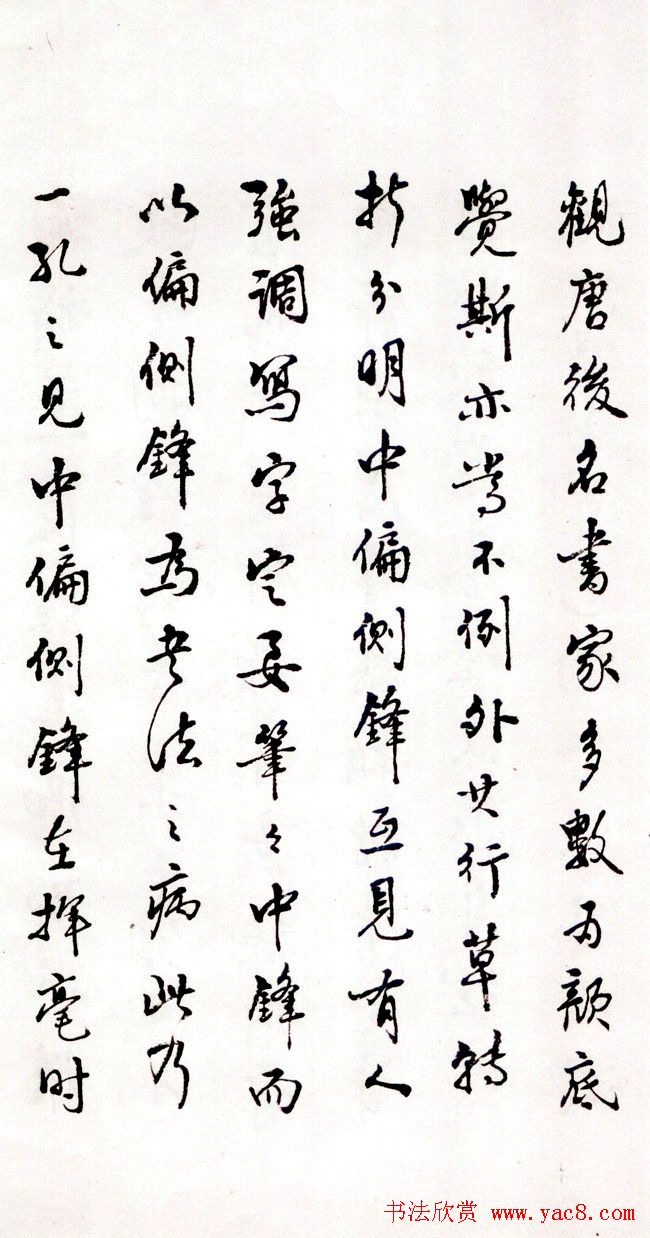 觀唐後名書家多數為顏底
覺斯亦當不例外其行草轉
折分明中偏側鋒互見有人
強調寫字定要筆々中鋒而
以偏側鋒為書法之病此乃
一孔之見中偏側鋒在揮毫时
书法欣赏 www.yac8.com